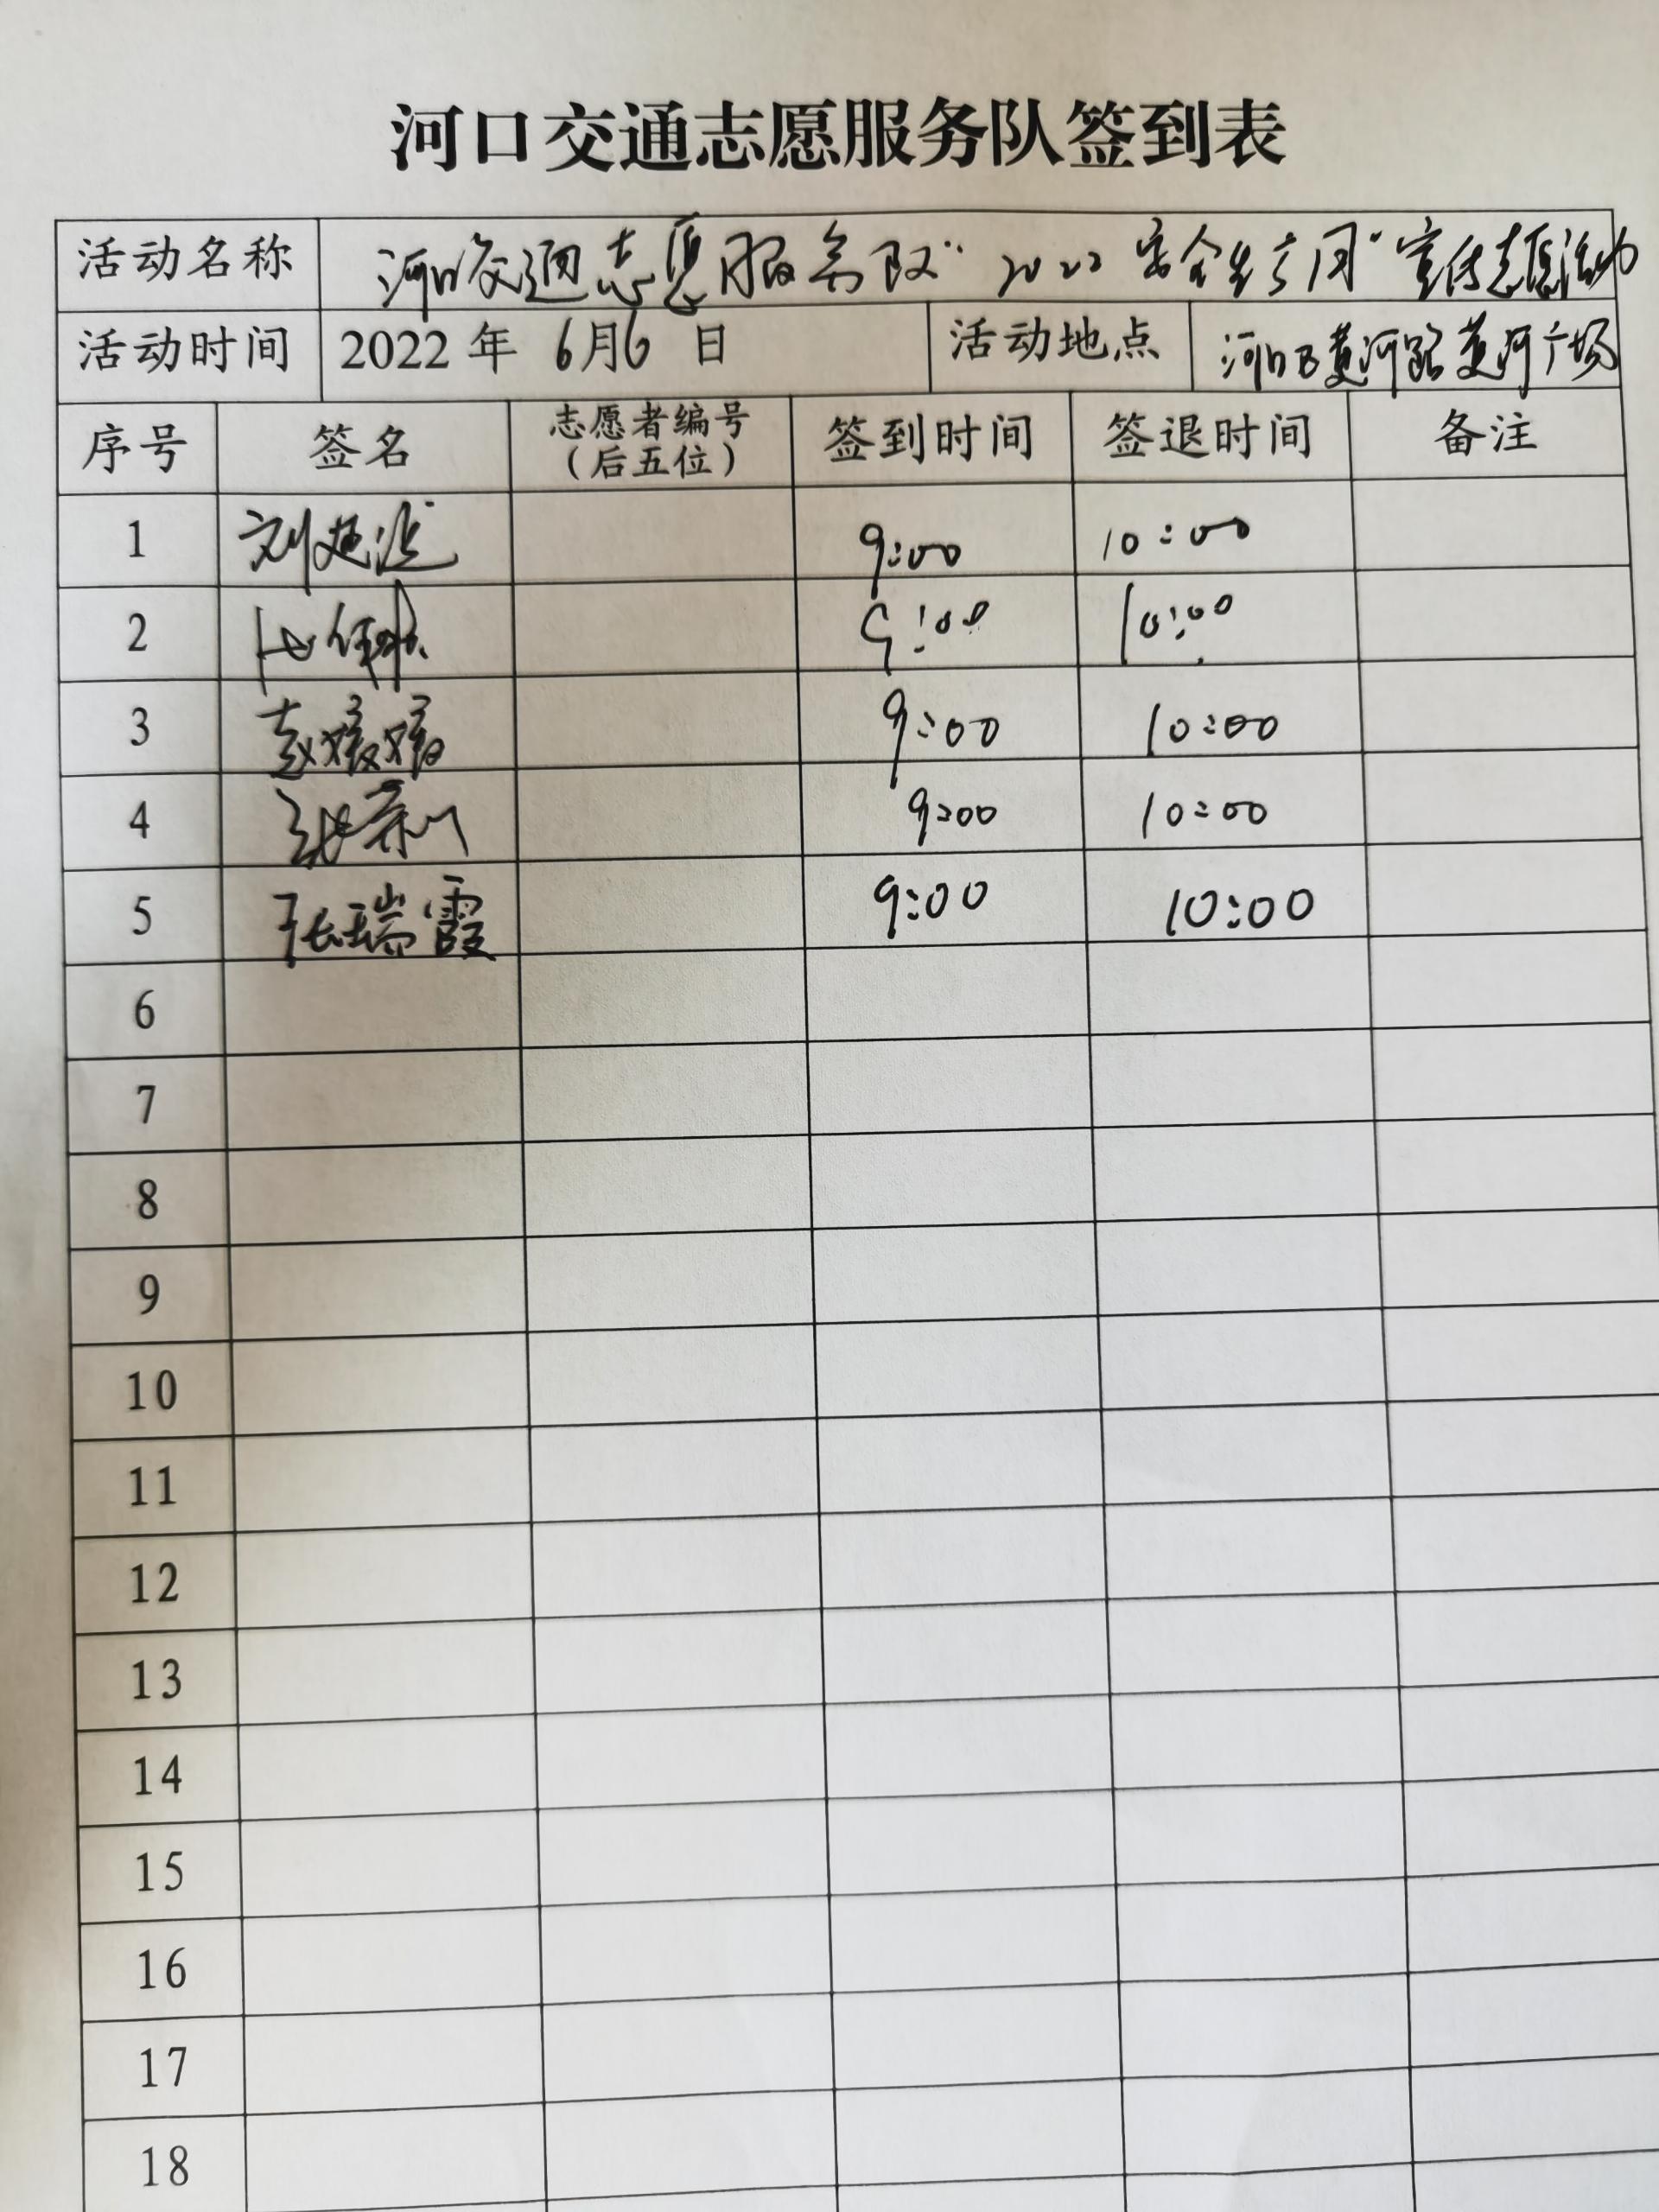 河口交通志愿服务队签到表
活动名称 河口交通志愿服务队"2022安全生产月"宣传志愿活动
活动时间 2022 年 6月6 日 活动地点 河口区黄河路黄河广场
序号 签名 志愿者编号（后五位） 签到时间 签退时间 备注
1 刘 9:00 10:00
2 9:00 10:00
3 赵媛媛 9:00 10:00
4 9:00 10:00
5 张瑞霞 9:00 10:00
6
7
8
9
10
11
12
13
14
15
16
17
18